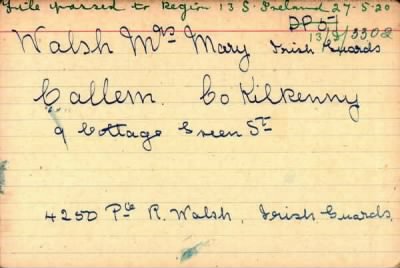 File passed to Region 13 S. Ireland 27-5-20
DP 5
Walsh Mrs Mary Irish Guards
Callem. Co Kilkenny
9 Cottage Green St
4250 Pte R. Walsh, Irish Guards